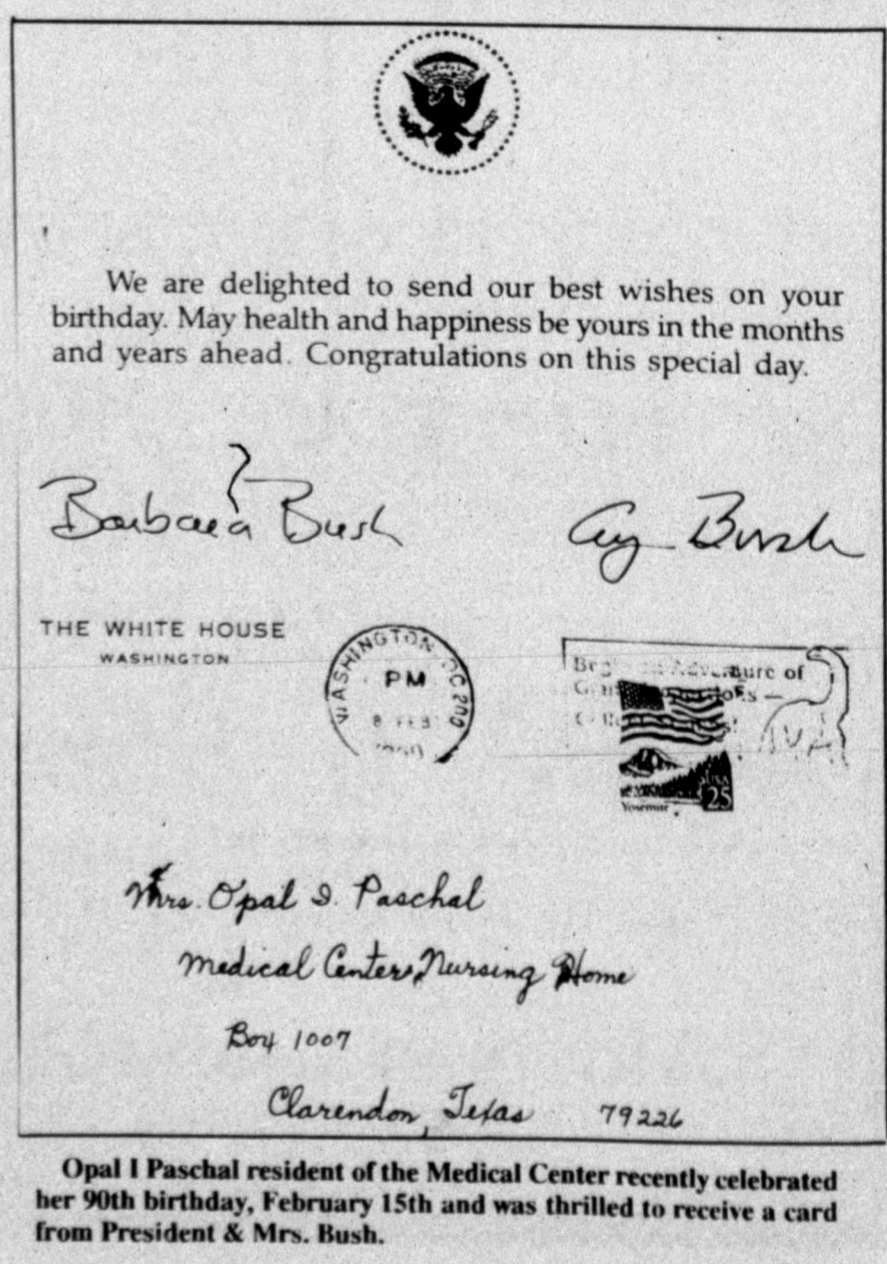 We are delighted to send our best wishes on your
birthday. May health and happiness be yours in the months
and years ahead. Congratulations on this special day.
Barbara Bush
Bush
THE WHITE HOUSE
WASHINGTON
WASHINGTON DC 200
PM
8 FEB
Adventure of
USA
25
Yosemite
Mrs. Opal I. Paschal
Medical Center Nursing Home
Box 1007
Clarendon, Texas 79226
Opal I Paschal resident of the Medical Center recently celebrated
her 90th birthday, February 15th and was thrilled to receive a card
from President & Mrs. Bush.